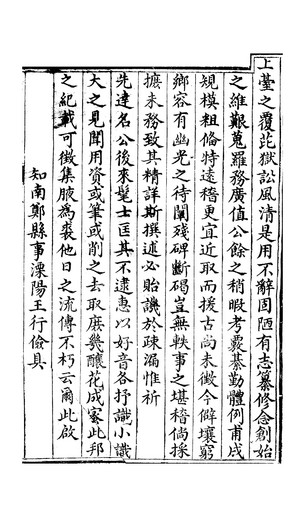 上臺之覆庇獄訟風清是用不辭固陋有志纂修念創始
之維艱蒐羅務廣值公餘之稍暇考覈綦勤體例甫成
規模粗備特遠稽更宜近取而援古尚未徵今僻壤窮
鄉容有幽光之待闡殘碑斷碣豈無軼事之堪稽倘採
摭未務致其精詳斯撰述必貽譏於疎漏惟祈
先達名公後來髦士匡其不逮惠以好音各抒識小識
大之見聞用資或筆或削之去取庶幾釀花成蜜此邦
之紀載可徵集腋為裘他日之流傳不朽云爾此啟
知南鄭縣事溧陽王行儉具